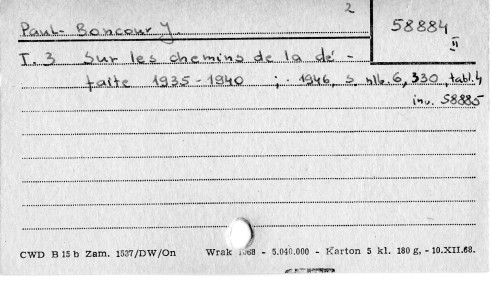 2
Paul-Boncour J.
58884
II
T. 3 Sur les chemins de la dé-
faite 1935-1940 ; - 1946, s. nlb. 6, 330, tabl. 4
inw. 58885
CWD B 15 b Zam. 1537/DW/On Wrak 1968 - 5.040.000 - Karton 5 kl. 180 g, - 10.XII.68.